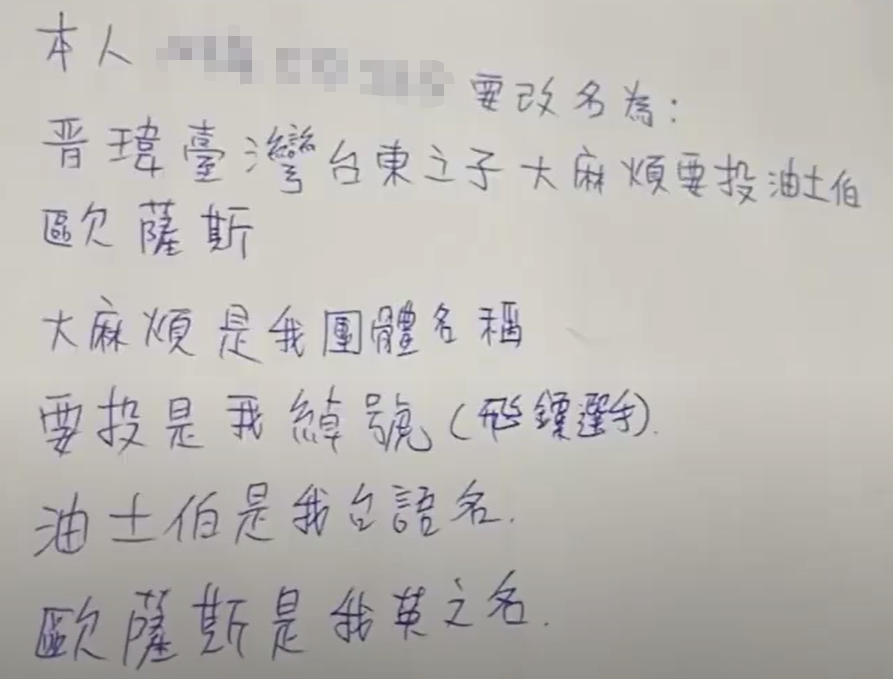 本人 要改名為:
晉瑋臺灣台東之子大麻煩要投油土伯
歐薩斯
大麻煩是我團體名稱
要投是我綽號(飛鏢選手).
油土伯是我台語名.
歐薩斯是我英文名.